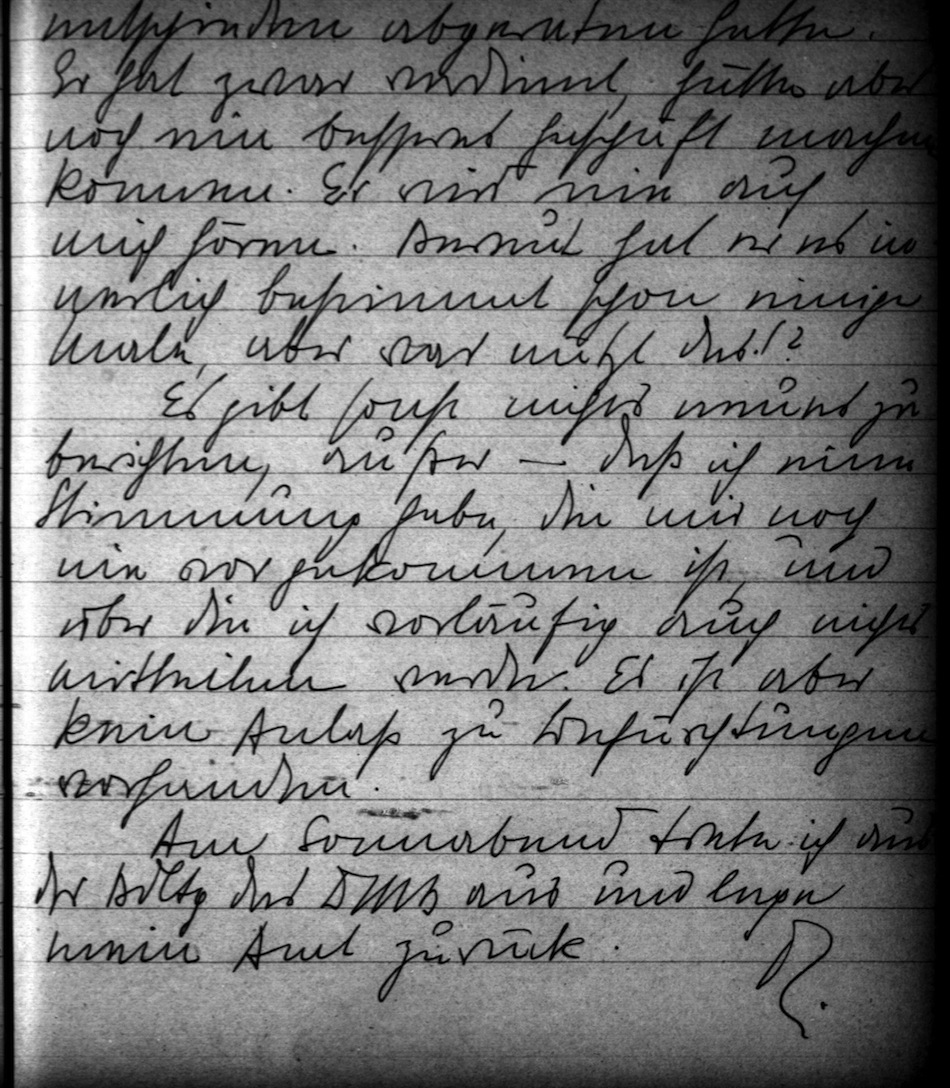 entschieden abgeraten hatte.
Er hat zwar verdient, hätte aber
noch ein besseres Geschäft machen
können. Er will nie auf
mich hören. Bereut hat er es in-
nerlich bestimmt schon einige
Male, aber was nützt das!?
Es gibt sonst nichts neues zu
berichten, außer — daß ich eine
Stimmung habe, die mir noch
nie vorgekommen ist, und
über die ich vorläufig auch nichts
mitteilen werde. Es ist aber
kein Anlaß zu Befürchtungen
vorhanden.
Am Sonnabend trete ich aus
der des aus und lege
mein Amt zurück.
R.